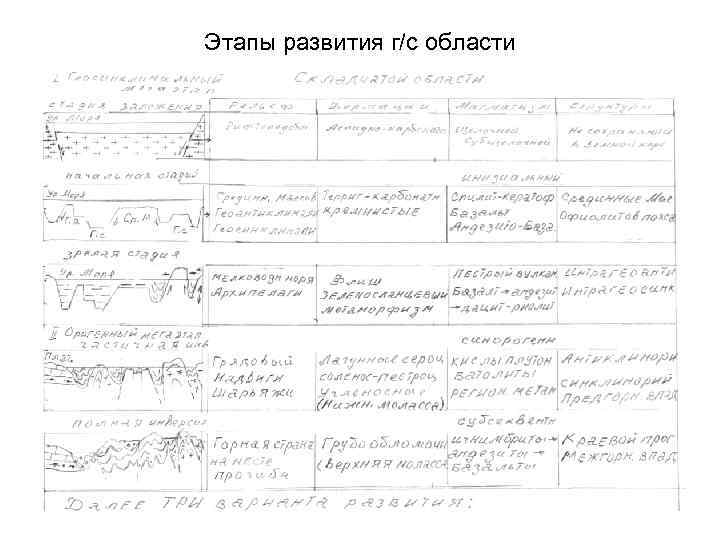 Этапы развития г/с области
I. Геосинклинальный мегаэтап
Складчатой области
стадия заложения
Рельеф
Формации
Магматизм
Структуры
ур. моря
Аспидно-карбонатн
Щелочной
Субщелочной
Не сохранились
в земной коре
начальная стадия
инициальный
ур. моря
Г.а.
Ср. М
Г.с.
Г.с.
Средин. массив
Геоантиклинали
Геосинклинали
Террит-карбонатн
кремнистые
Спилит-кератоф
Базалы
Андезито-база
Срединные мас
Офиолитов пояса
зрелая стадия
ур. моря
мелководн моря
Архипелаги
Флиш
зеленосланцевый
метаморфизм
Пестрый вулкан
Базалт→андезит
→дацит-риолит
Интрагеоанти
Интрагеосинк
II Орогенный мегаэтап
частичная инв
синорогенн
Плат.
Грядовый
Надвиги
Шарьяжи
Лагунные сероц
соленос-пестроц
Угленосные
(Нижн. моласса)
кислы плутон
Батолиты
регион. метам
Антиклинори
синклинорий
Предгорн. впад
полная инверсия
субсеквентн
Горная страна
на месте
прогиба
Грубообломочн
(Верхняя моласса
игнимбриты→
андезиты→
базальты
Краевой прог
Межгорн. впад
Далее три варианта развития: